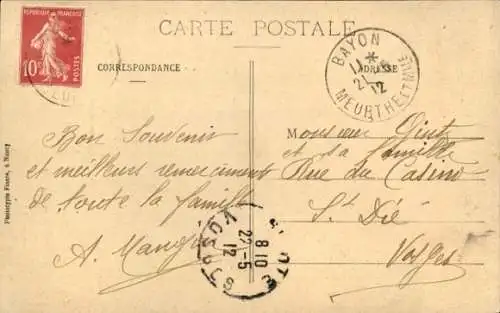 CARTE POSTALE
REPUBLIQUE FRANÇAISE
10c POSTES
CORRESPONDANCE
ADRESSE
BAYON
21 - 5
12
MEURTHE ET MLLE
Bon Souvenir
et meilleurs remerciements
de toute la famille
A.
Monsieur
et sa famille
Rue du Casino
St Dié
Vosges
ST DIE VOSGES
8 10
22-5
12
Phototypie France, à Nancy